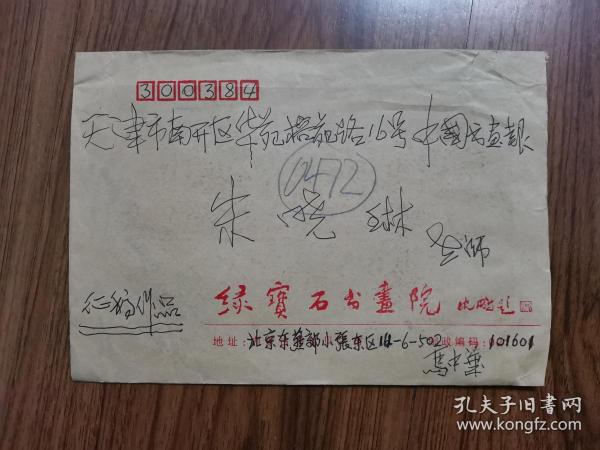 300384
天津市南开区华苑榕苑路16号中国书画报
0472
宋晓琳 老师
征稿作品
绿寳石书畫院 沈鹏题
地址:北京东燕郊小張东区14-6-502 邮政编码:101601
馬中华
孔夫子旧書网
kongfz.com